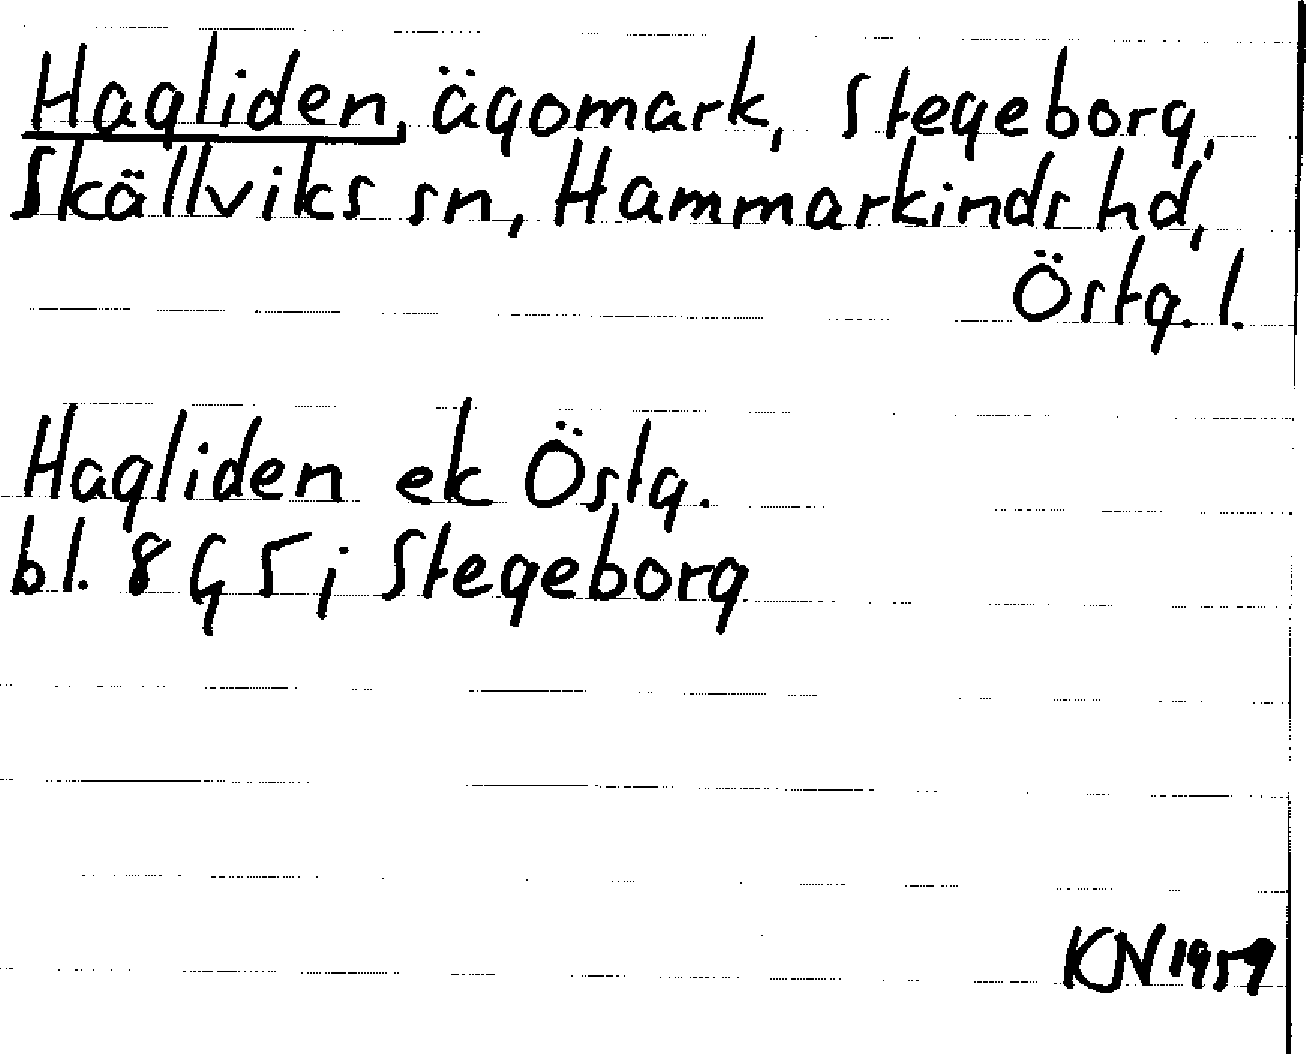 Hagliden, ägomark, Stegeborg,
Skällviks sn, Hammarkinds hd,
Östg. l.
Hagliden ek Östg.
bl. 8 G 5 j Stegeborg
KN 1959